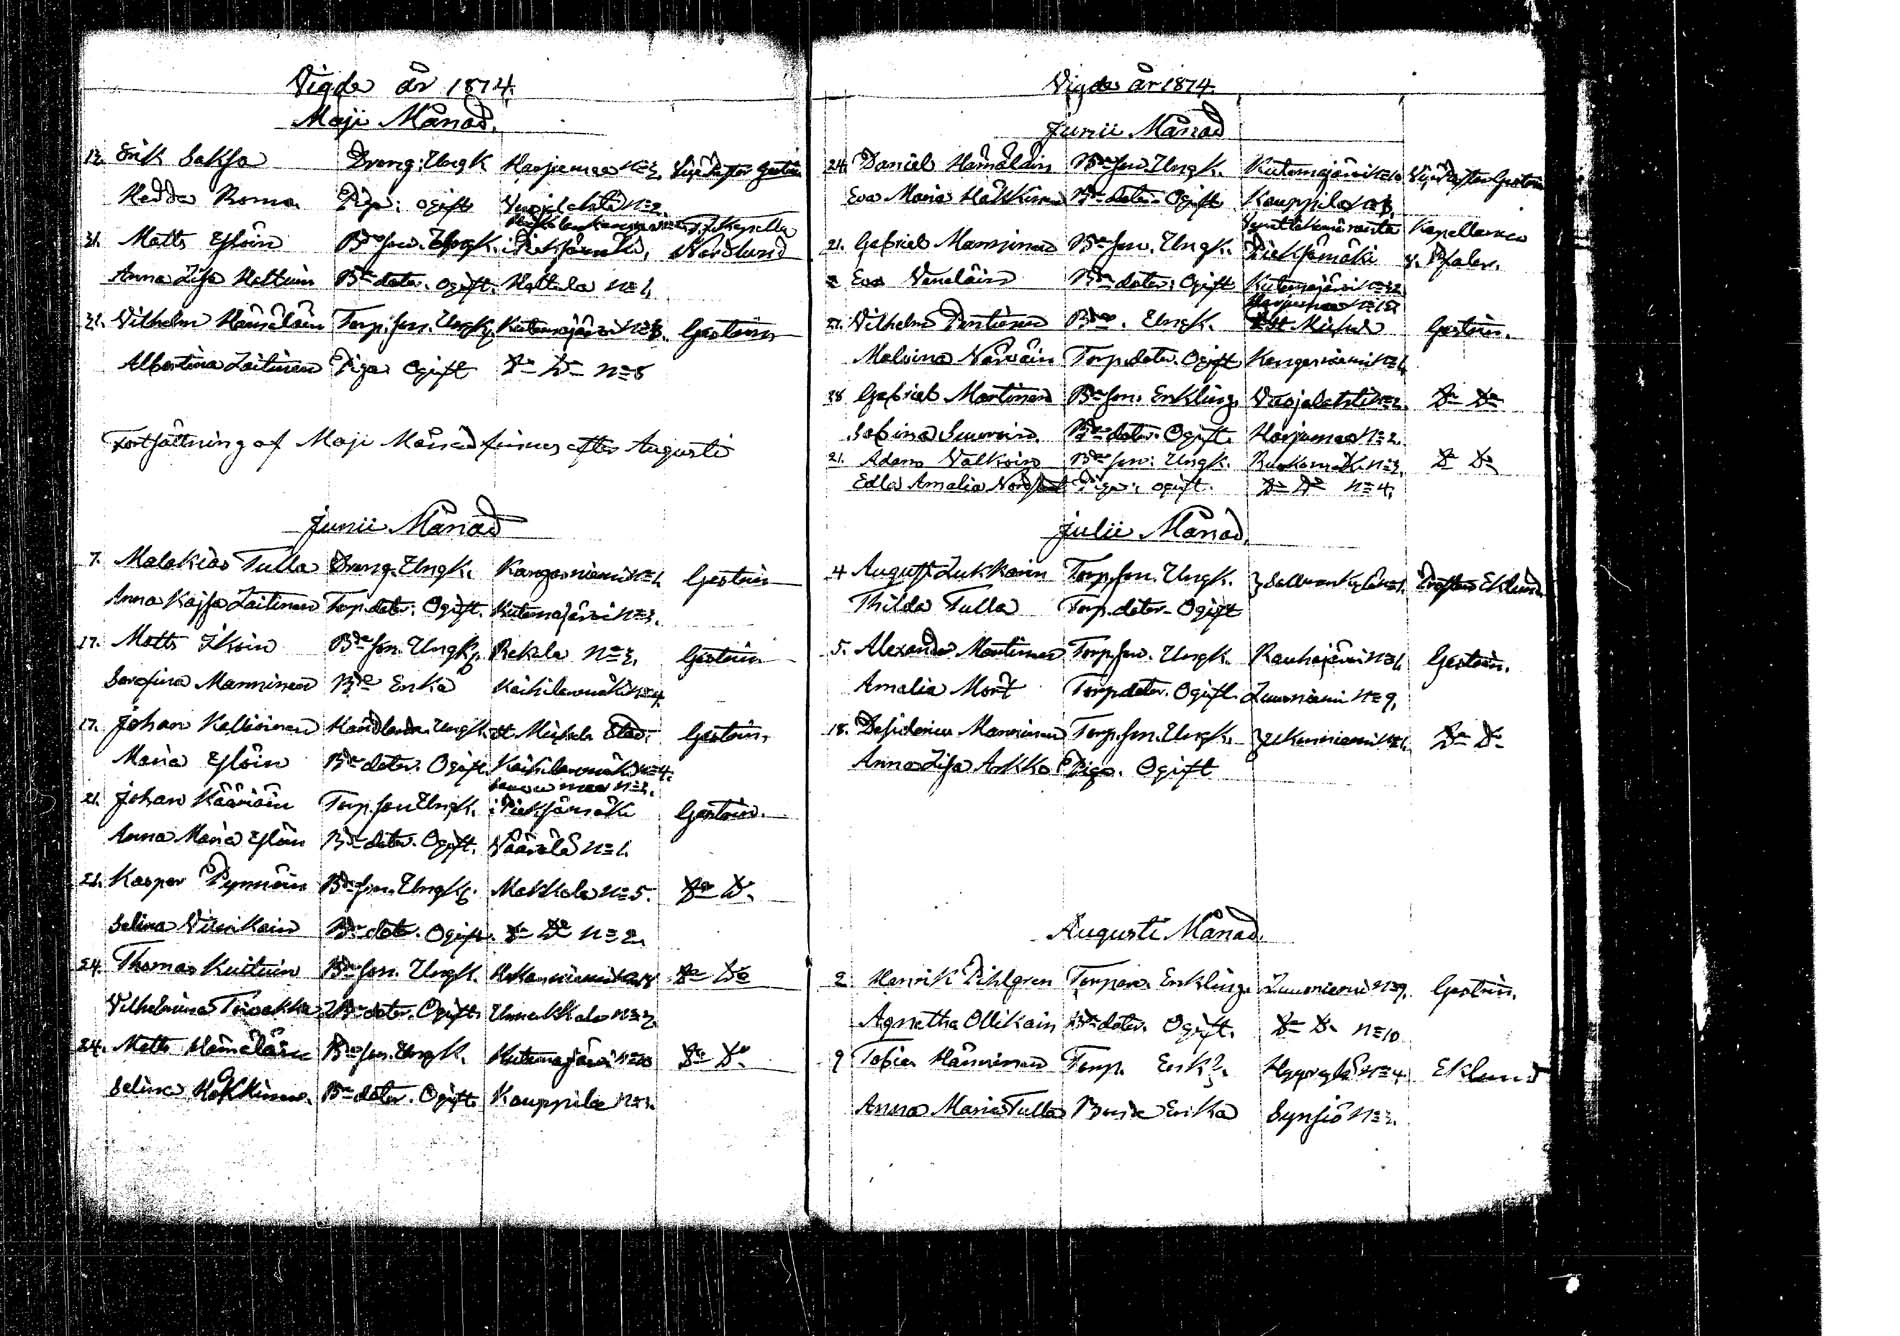 Vigde år 1874.
Maji Månad.
12. Erik Saksa Dreng. Ungk Harjumaa N=3. Vice Pastor Gestrin
Hedda Roma. Piga: ogift Vuojalahti N=2.
31. Matts Eslöin Bde son. Ungk. i Pieksämäki, Nordlund
Anna Lisa Hettuin Bde doter. ogift. Hettula N=1.
31. Vilhelm Hämäläin Torp. son. Ungk. Kutemajärvi N=8. Gestrin
Albertina Laitinen Piga Ogift Do Do N=8
Fortsättning af Maji Månad finnes efter Augusti
Junii Månad
7. Malakias Tulla Dreng. Ungk. Kangasniemi N=1. Gestrin
Anna Kajsa Laitinen Torp. doter. Ogift. Kutemajärvi N=3.
17. Matts Ikoin Bde son. Ungk. Rekola N=3. Gestrin
Serafina Manninen Bde Enka Koihilanmäki N=4.
17. Johan Ungk. St Michels Stad. Gestrin.
Maria Eslöin Bde doter. Ogift. Koihilanmäki N=4.
21. Johan Kääriäin Torp. son Ungk. i Pieksämäki Gestrin.
Anna Maria Eslöin Bde doter. Ogift. Väärälä N=1.
21. Kasper Pynnöin Bde son. Ungk. Makkola N=5. Do Do
Selina Vilsikain Bde doter. Ogift. Do Do N=2.
24. Thomas Kuituin Bde son. Ungk. Do Do
Vilhelmina Tiivakka Bde doter. Ogift. Unnukkala N=3.
24. Matts Hämäläin Bde son. Ungk. Kutemajärvi N=10 Do Do
Selina Häkkinen. Bde doter. Ogift. Kauppila N=3.
Vigde år 1874.
Junii Månad
24. Daniel Hämäläin Bde son. Ungk. Kutemajärvi N=10 Vice Pastor Gestrin
Eva Maria Häkkinen Bde doter. Ogift Kauppila N=3.
21. Gabriel Manninen Bde son. Ungk. Pieksämäki Kapellanen v. Pfaler.
Eva Venäläin Bde doter. Ogift Kutemajärvi
21. Vilhelm Pentinen Bde. Ungk. St. Michel Gestrin.
Malvina Närväin Torp. doter. Ogift Kangasniemi N=1.
28 Gabriel Martinen Bde son. Enkling. Vuojalahti N=2. Do Do
Sabina Suuroin. Bde doter. Ogift. Harjumaa N=2.
21. Adam Valkoin Bde son. Ungk. Ruokomäki N=3. Do Do
Edla Amalia Piga: ogift. Do Do N=4.
Julii Månad.
4 August Lukkarin Torp. son. Ungk. } Salmenkylä N=1. Prosten Eklund
Thilda Tulla Torp. doter. Ogift
5. Alexander Mantinen Torp. son. Ungk. Rauhajärvi N=1. Gestrin.
Amalia Mort Torp. doter. Ogift. Luusniemi N=9.
18. Desiderius Manninen Torp. son. Ungk. } Do Do
Anna Lisa Arkko Piga. Ogift
Augusti Månad.
2. Henrik Pihlgren Torpare. Enkling. Luusniemi N=9. Gestrin.
Agnetha Ollikain Bde doter. Ogift. Do Do N=10
9 Tobias Hänninen Torp. Enkl. Hyyrylä N=4 Eklund
Anna Maria Tulla Bonde Enka Synsiö N=3.